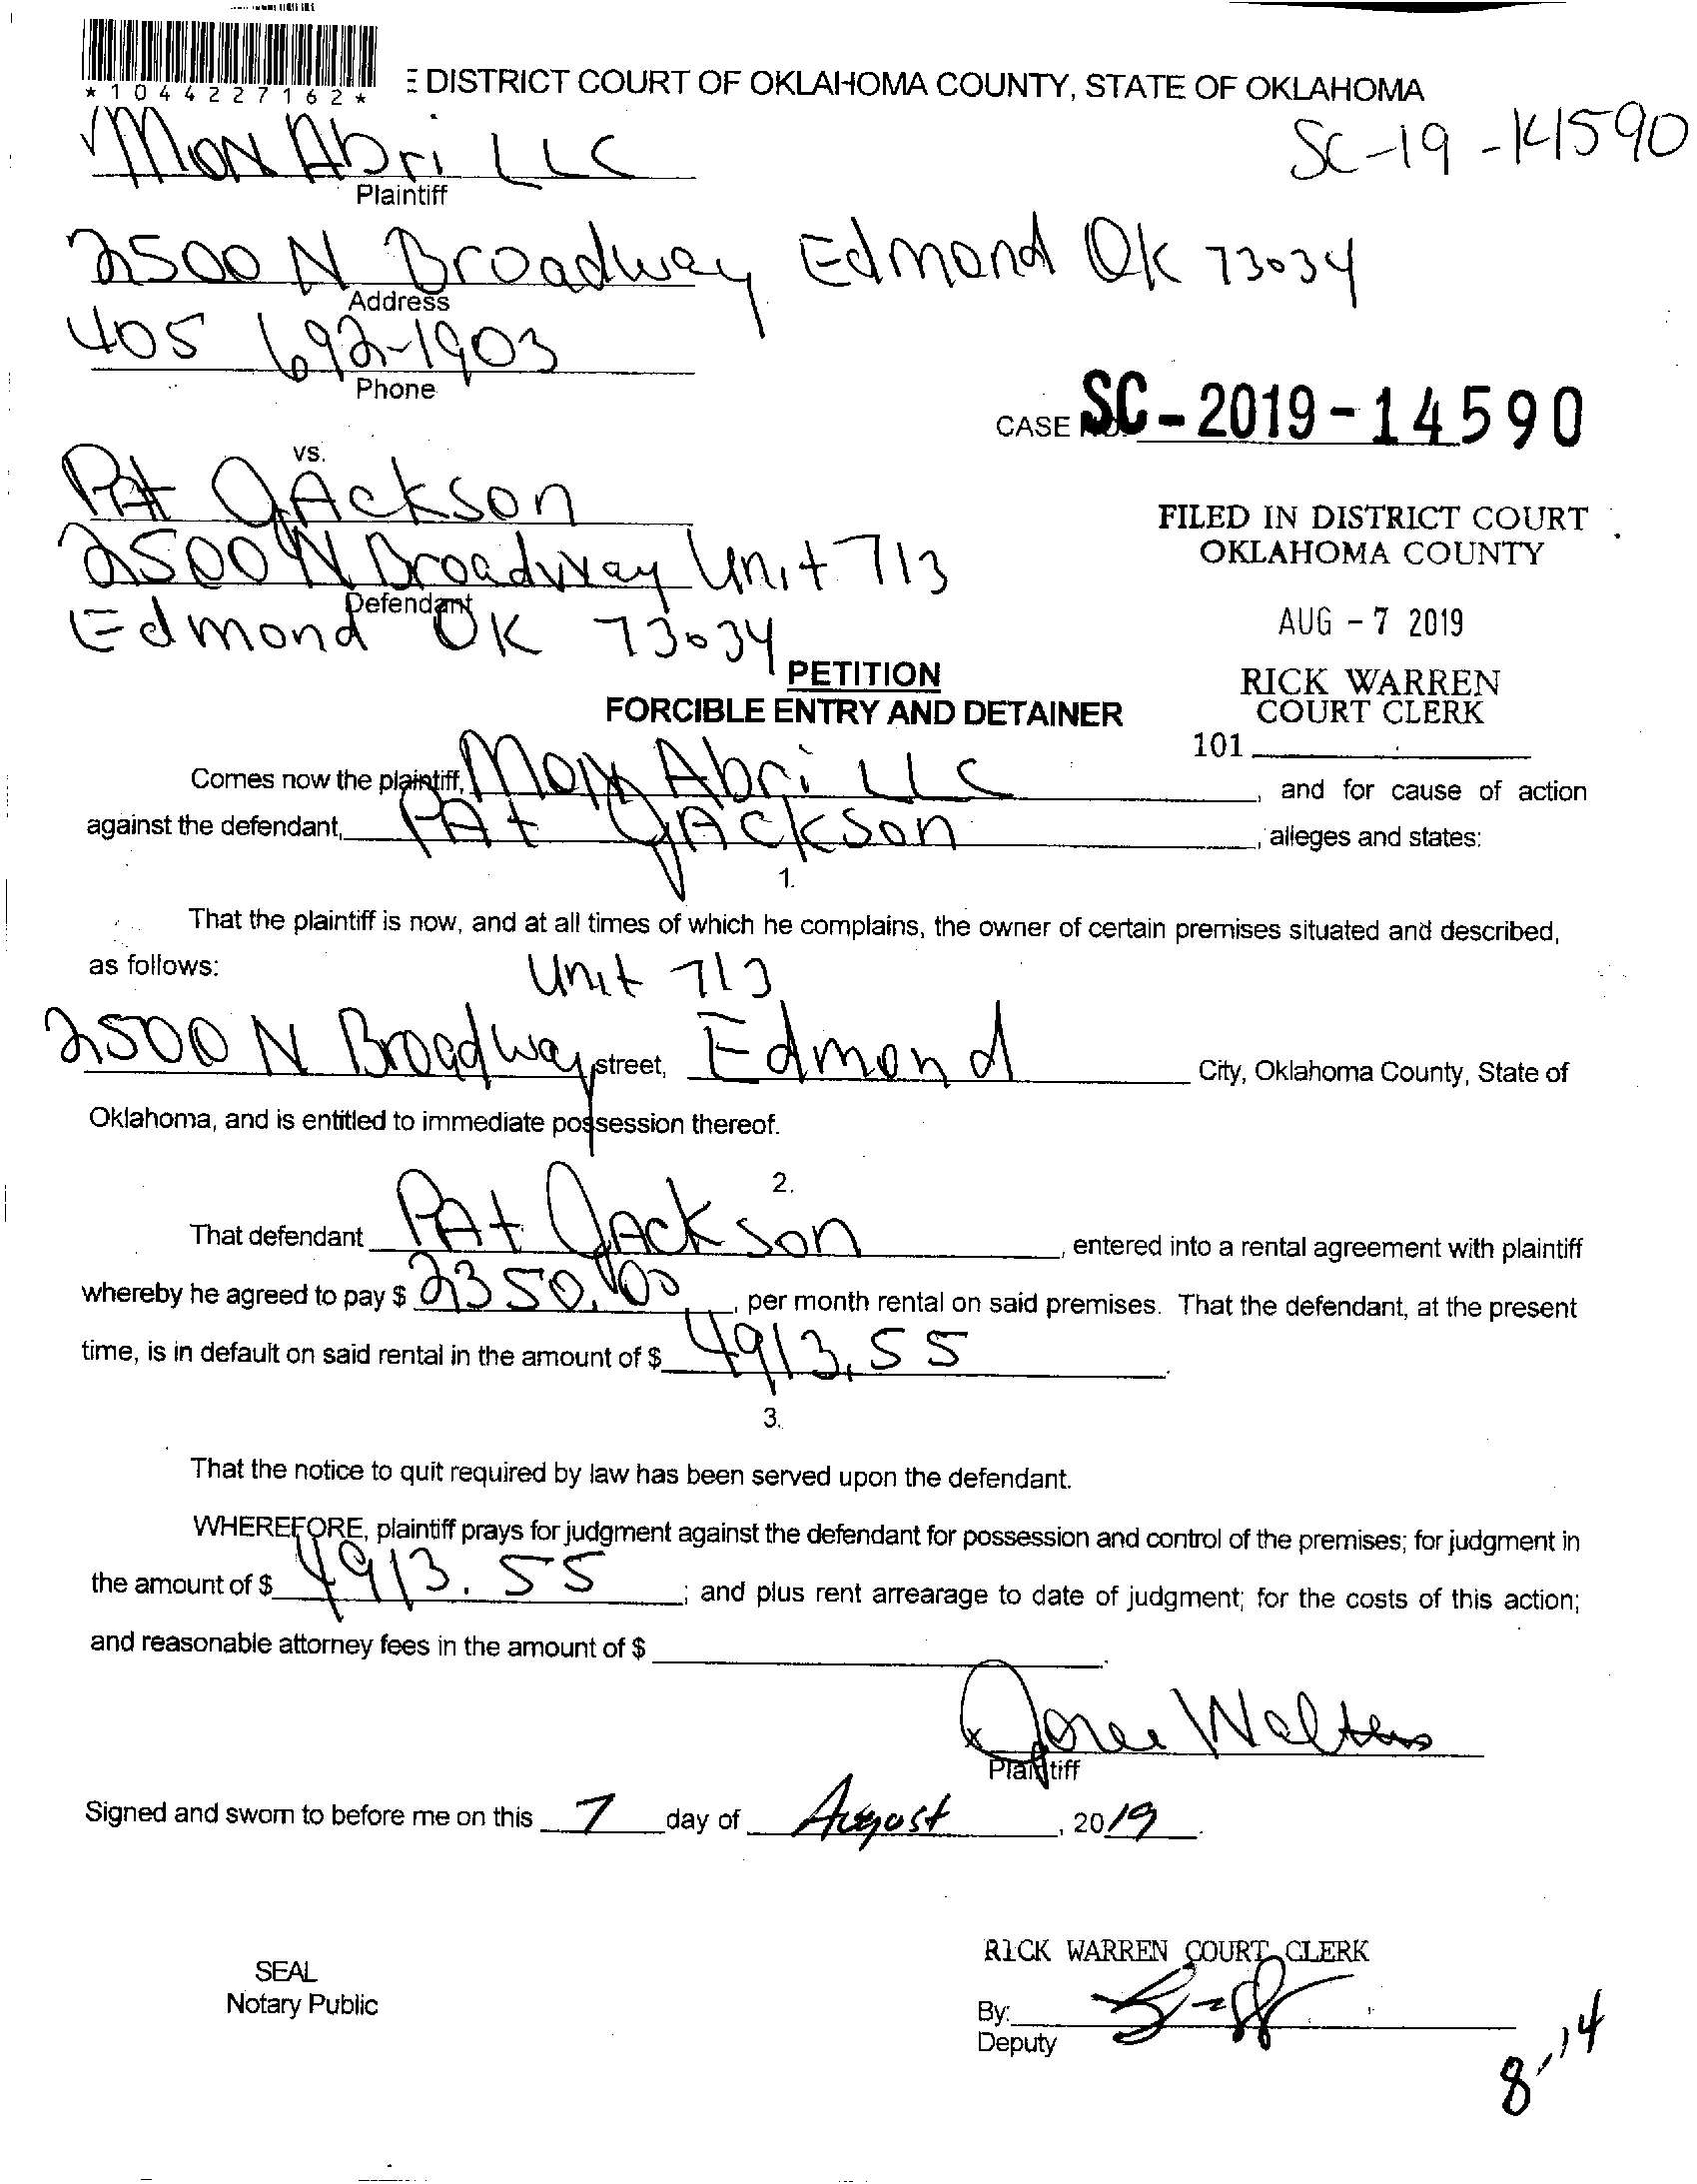 *1044227162*
E DISTRICT COURT OF OKLAHOMA COUNTY, STATE OF OKLAHOMA
Mon Abri LLC
SC-19-14590
Plaintiff
2500 N Broadway Edmond OK 73034
Address
405 692-1903
Phone
CASE NO. SC-2019-14590
vs.
PAt JAckson
2500 N Broadway Unit 713
Defendant
Edmond OK 73034
FILED IN DISTRICT COURT
OKLAHOMA COUNTY
AUG - 7 2019
RICK WARREN
COURT CLERK
101
PETITION
FORCIBLE ENTRY AND DETAINER
Comes now the plaintiff, Mon Abri LLC, and for cause of action
against the defendant, PAt JAckson, alleges and states:
1.
That the plaintiff is now, and at all times of which he complains, the owner of certain premises situated and described,
as follows: Unit 713
2500 N Broadway street, Edmond City, Oklahoma County, State of
Oklahoma, and is entitled to immediate possession thereof.
2.
That defendant PAt JAckson, entered into a rental agreement with plaintiff
whereby he agreed to pay $ 2350.00, per month rental on said premises. That the defendant, at the present
time, is in default on said rental in the amount of $ 4913.55.
3.
That the notice to quit required by law has been served upon the defendant.
WHEREFORE, plaintiff prays for judgment against the defendant for possession and control of the premises; for judgment in
the amount of $ 4913.55; and plus rent arrearage to date of judgment; for the costs of this action;
and reasonable attorney fees in the amount of $ .
x Walters
Plaintiff
Signed and sworn to before me on this 7 day of August, 2019.
SEAL
Notary Public
RICK WARREN COURT CLERK
By:
Deputy
8-14